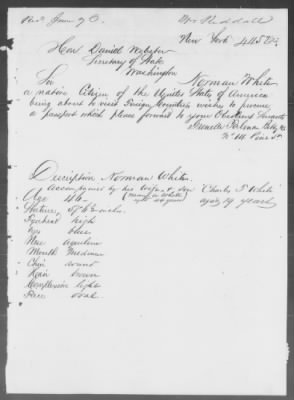 New York
Hon Daniel Webster
Secretary of State
Washington
Sir Norman White
a native Citizen of the United States of America
being about to visit Foreign Countries wishes to procure
a passport which please forward to your Obedient Servants
Description Norman White
accompanied by his wife & son Charles T White
aged 19 years
Age 46
Stature, 5 ft 6 inches
Forehead high
Eyes blue
Nose aquiline
Mouth Medium
Chin round
Hair brown
Complexion light
Face oval